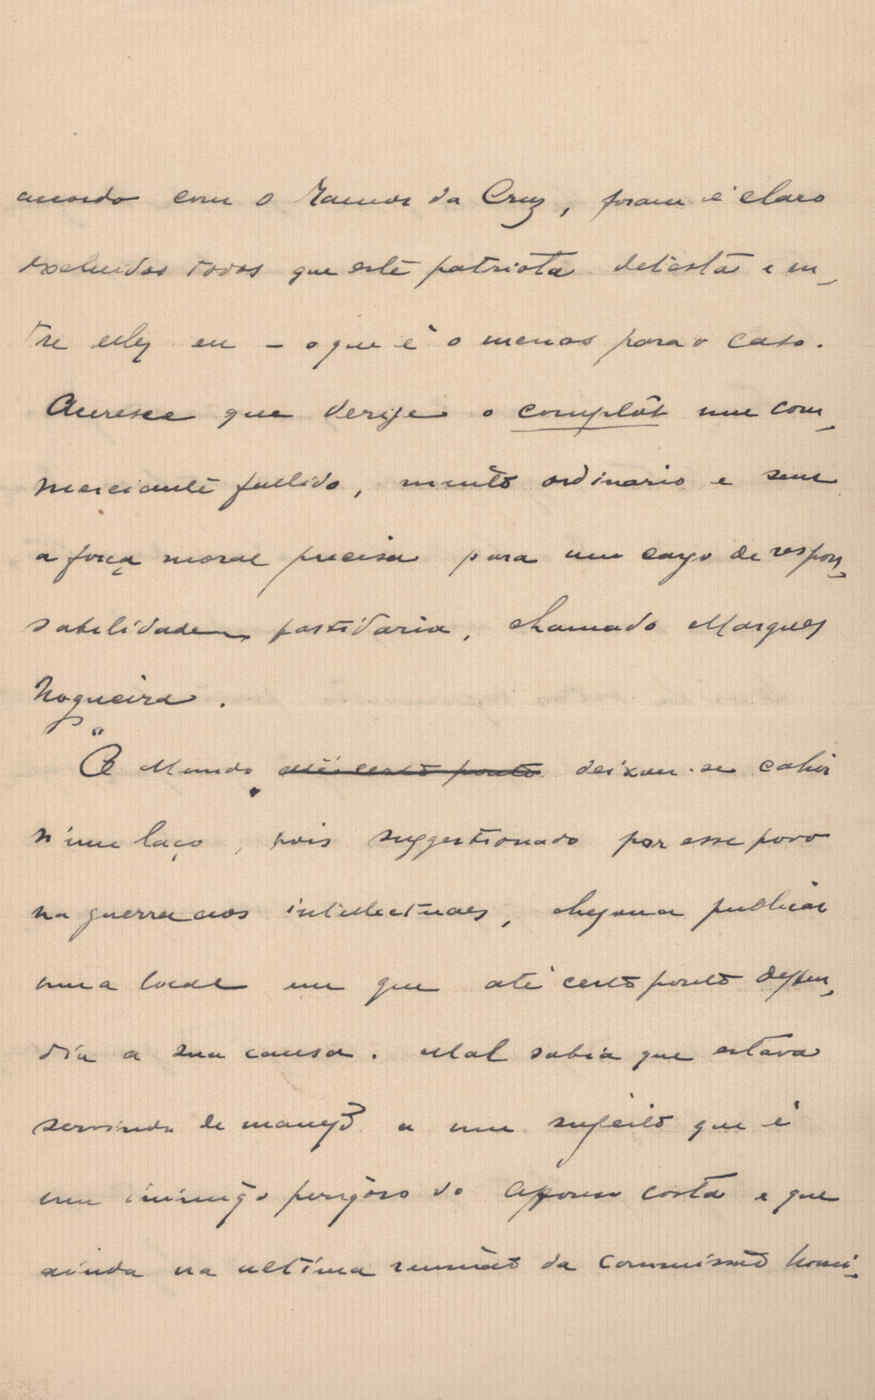 accordo com o Ramos da Cruz, foram é claro
excluidos todos que este patriota detesta e en-
tre elles eu – o que é o menos para o caso.
Accresce que derige o complôt um com-
merciante fallido, muito ordinario e sem
a força moral precisa para um cargo de respon-
sabilidade partidaria, chamado Marques
Nogueira.
"O Mundo" até certo ponto deixou-se cahir
n'um laço, pois suggestionado por esse povo
na guerra aos intellectuaes, chegou a publicar
uma local em que até certo ponto defen-
dia a sua causa. Mal sabia que estava
servindo de manejo a um sujeito que é
um inimigo perigoso do Affonso Costa e que
ainda na ultima reunião da Commissão